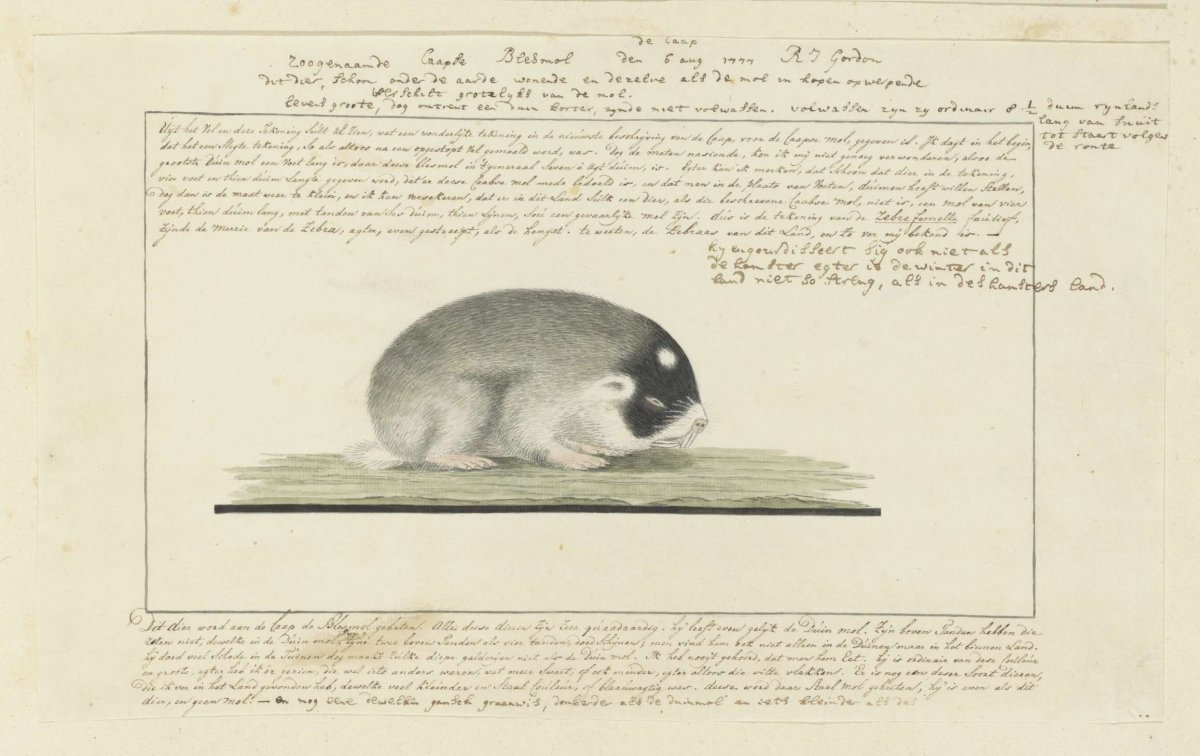 de caap
Zoogenaamde Caapse Blesmol den 6 aug 1777 R J Gordon
dit dier, schoon onder de aarde wonende en dezelve als de mol in hopen opwerpende
verschilt grotelyks van de mol.
levens groote, dog omtrent een duim korter, zynde niet volwassen. volwassen zyn zy ordinair 8 1/2 duim rynlands
lang van snuit
tot staart volgens
de route
Uijt het Vel en deze Tekening Sult Ul. Zien, wat een wonderlijke tekening in de nieuwste beschrijving van de Caap, voor de Caapse mol, gegeven is. Ik dagt in het begin,
dat het een Slegte tekening, So als altoos na een opgestopt Vel gemaakt word, was. Dog de maten nasiende, kon ik mij niet genoeg verwonderen, alsoo de
grootste Duin mol een Voet lang is, daar deese blesmol in 't generaal Seven à Agt duim, is. Egter kan ik merken, dat Schoon dat dier in de tekening,
vier voet en thien duim Lengte gegeven word, dat er deese Caabse mol mede bedoeld is, en dat men in de plaats van Voeten, duimen heeft willen Stellen,
dog dan is de maat weer te klein, en ik kan verseekeren, dat er in dit Land Sulk een dier, als die beschreevene Caabse mol, niet is, een mol van vier
voet, thien duim lang, met tanden van Ses duim, thien Lynen, Sou een gevaarlyke mol zyn. dus is de tekening van de Zebre femelle factief,
zijnde de merrie van de Zebra, agter, even gestreept, als de hengst. te weeten, de Zebraas van dit Land, en to ver mij bekend is. —
hy engourdisseert sig ook niet als
de hamster egter is de winter in dit
land niet so streng, als in des hamsters land.
Dit dier word aan de Caap de Blesmol geheten. Alle deese dieren zijn zeer quaadaardig. hij leeft even gelijk de Duin mol. Zijn boven Tanden hebben die
reten niet, dewelke in de Duin mol, zijne twee boven Tanden als vier tanden, doed Schijnen; men vind hem ook niet alleen in de Duinen maar in het binnen Land.
hij doed veel Schade in de Tuinen dog maakt Zulke diepe galderijen niet als de Duin mol. Ik heb nooijt gehoord, dat men hem eet. hij is ordinair van dese Couleur
en groote, egter heb ik er gezien, die wel iets anders waren, wat meer Swart, of ook minder, egter altoos die witte vlakken. Er is nog een deser Soort dieren,
die ik ver in het Land gevonden heb, dewelke veel kleinder en Staal Couleur, of blauwagtig was. deese word daar Staal mol geheeten, hij is even als dit
dier, en geen mol. — en nog eene dewelke gansch graauw is, donkerder als de duinmol en iets kleinder als de